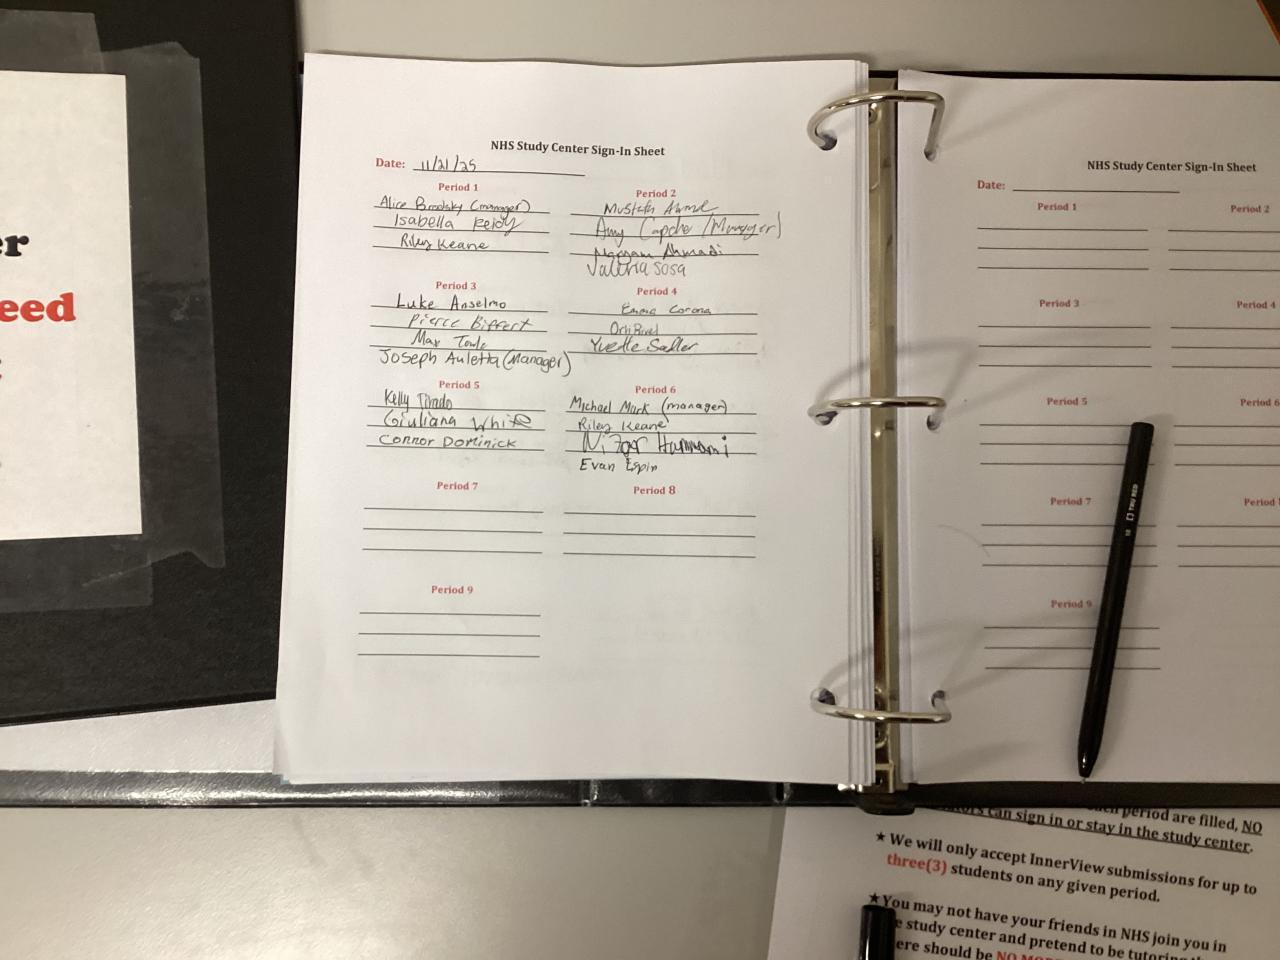 er
eed
NHS Study Center Sign-In Sheet
Date: 11/21/25
Period 1
Alice Brodsky (manager)
Isabella Reidy
Riley Keane
Period 2
Mustafa
Amy (Manager)
Maryam Ahmadi
Valeria Sosa
Period 3
Luke Anselmo
Pierce Biffert
Max Towle
Joseph Auletta (Manager)
Period 4
Emma Corona
Yvette Sadler
Period 5
Kelly Tirado
Giuliana White
Connor Dominick
Period 6
Michael Mark (manager)
Riley Keane
Nizar Hammami
Evan Espin
Period 7
Period 8
Period 9
NHS Study Center Sign-In Sheet
Date:
Period 1
Period 2
Period 3
Period 4
Period 5
Period 6
Period 7
Period
Period 9
TRU RED
period are filled, NO
can sign in or stay in the study center.
★ We will only accept InnerView submissions for up to
three(3) students on any given period.
★ You may not have your friends in NHS join you in
e study center and pretend to be tutoring
ere should be NO